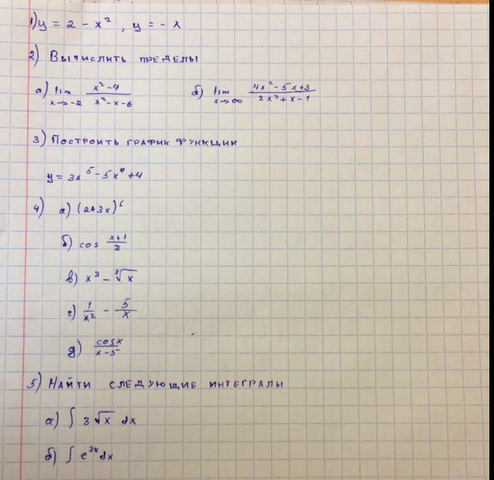 1) y = 2 - x², y = - x
2) Вычислить пределы
а) lim x→-2 (x²-4)/(x²-x-6) б) lim x→∞ (4x²-5x+3)/(2x²+x-1)
3) Построить график функции
y = 3x⁵ - 5x⁴ + 4
4) а) (2+3x)⁶
б) cos (x+1)/2
в) x³ - ∛x
г) 1/x² - 5/x
д) cosx/(x-5)
5) Найти следующие интегралы
а) ∫ 3 √x dx
б) ∫ e³ˣ dx